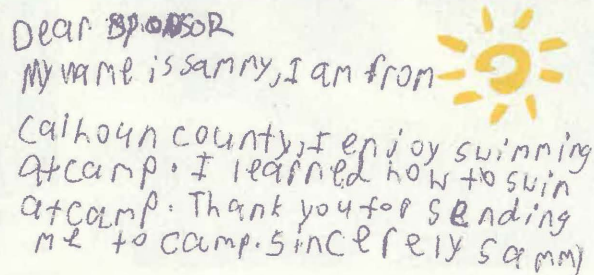 Dear SPONSOR
My name is sammy, I am from
Calhoun county, I enjoy swimming
at camp. I learned how to swin
at camp. Thank you for sending
me to camp. sincerely sammy